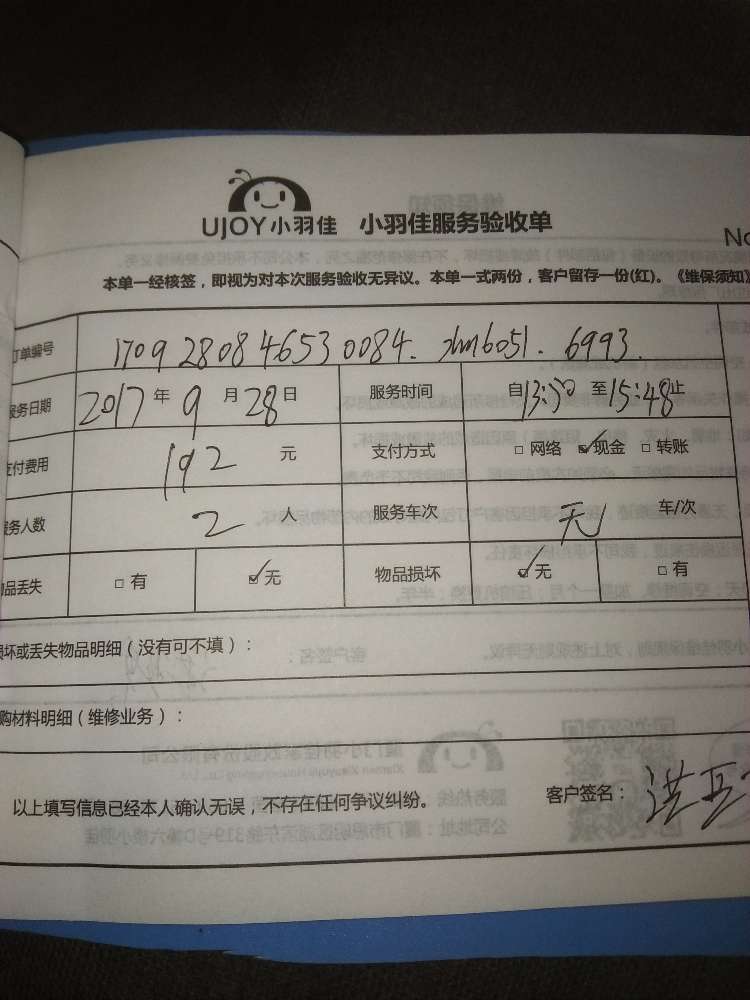 UJOY小羽佳 小羽佳服务验收单
No
本单一经核签，即视为对本次服务验收无异议。本单一式两份，客户留存一份(红)。《维保须知》
订单编号 1709280846530084. xhm6051. 6993.
服务日期 2017年9月28日 服务时间 自13:50至15:48止
支付费用 192 元 支付方式 □网络 ☑现金 □转账
服务人数 2 人 服务车次 无 车/次
物品丢失 □有 ☑无 物品损坏 ☑无 □有
损坏或丢失物品明细（没有可不填）：
购材料明细（维修业务）：
以上填写信息已经本人确认无误，不存在任何争议纠纷。 客户签名：洪